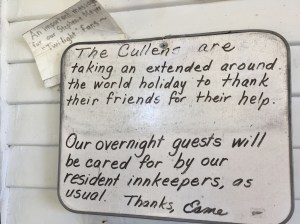 for our
"Twilight" Fans
The Cullens are
taking an extended around
the world holiday to thank
their friends for their help.
Our overnight guests will
be cared for by our
resident innkeepers, as
usual. Thanks, Esme